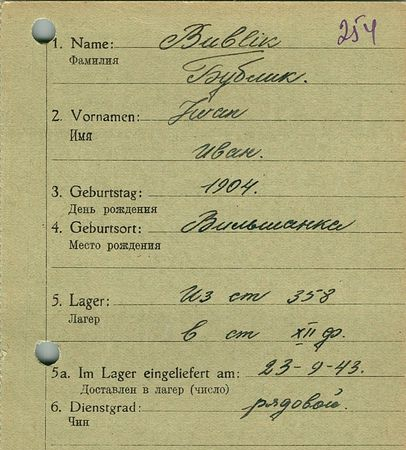 254
1. Name: Bublik
Фамилия
Бублик.
2. Vornamen: Iwan
Имя
Иван.
3. Geburtstag: 1904.
День рождения
4. Geburtsort: Вильшанка
Место рождения
5. Lager: Из ст 358
Лагер
в ст XII ф.
5a. Im Lager eingeliefert am: 23-9-43.
Доставлен в лагер (число)
6. Dienstgrad: рядовой.
Чин